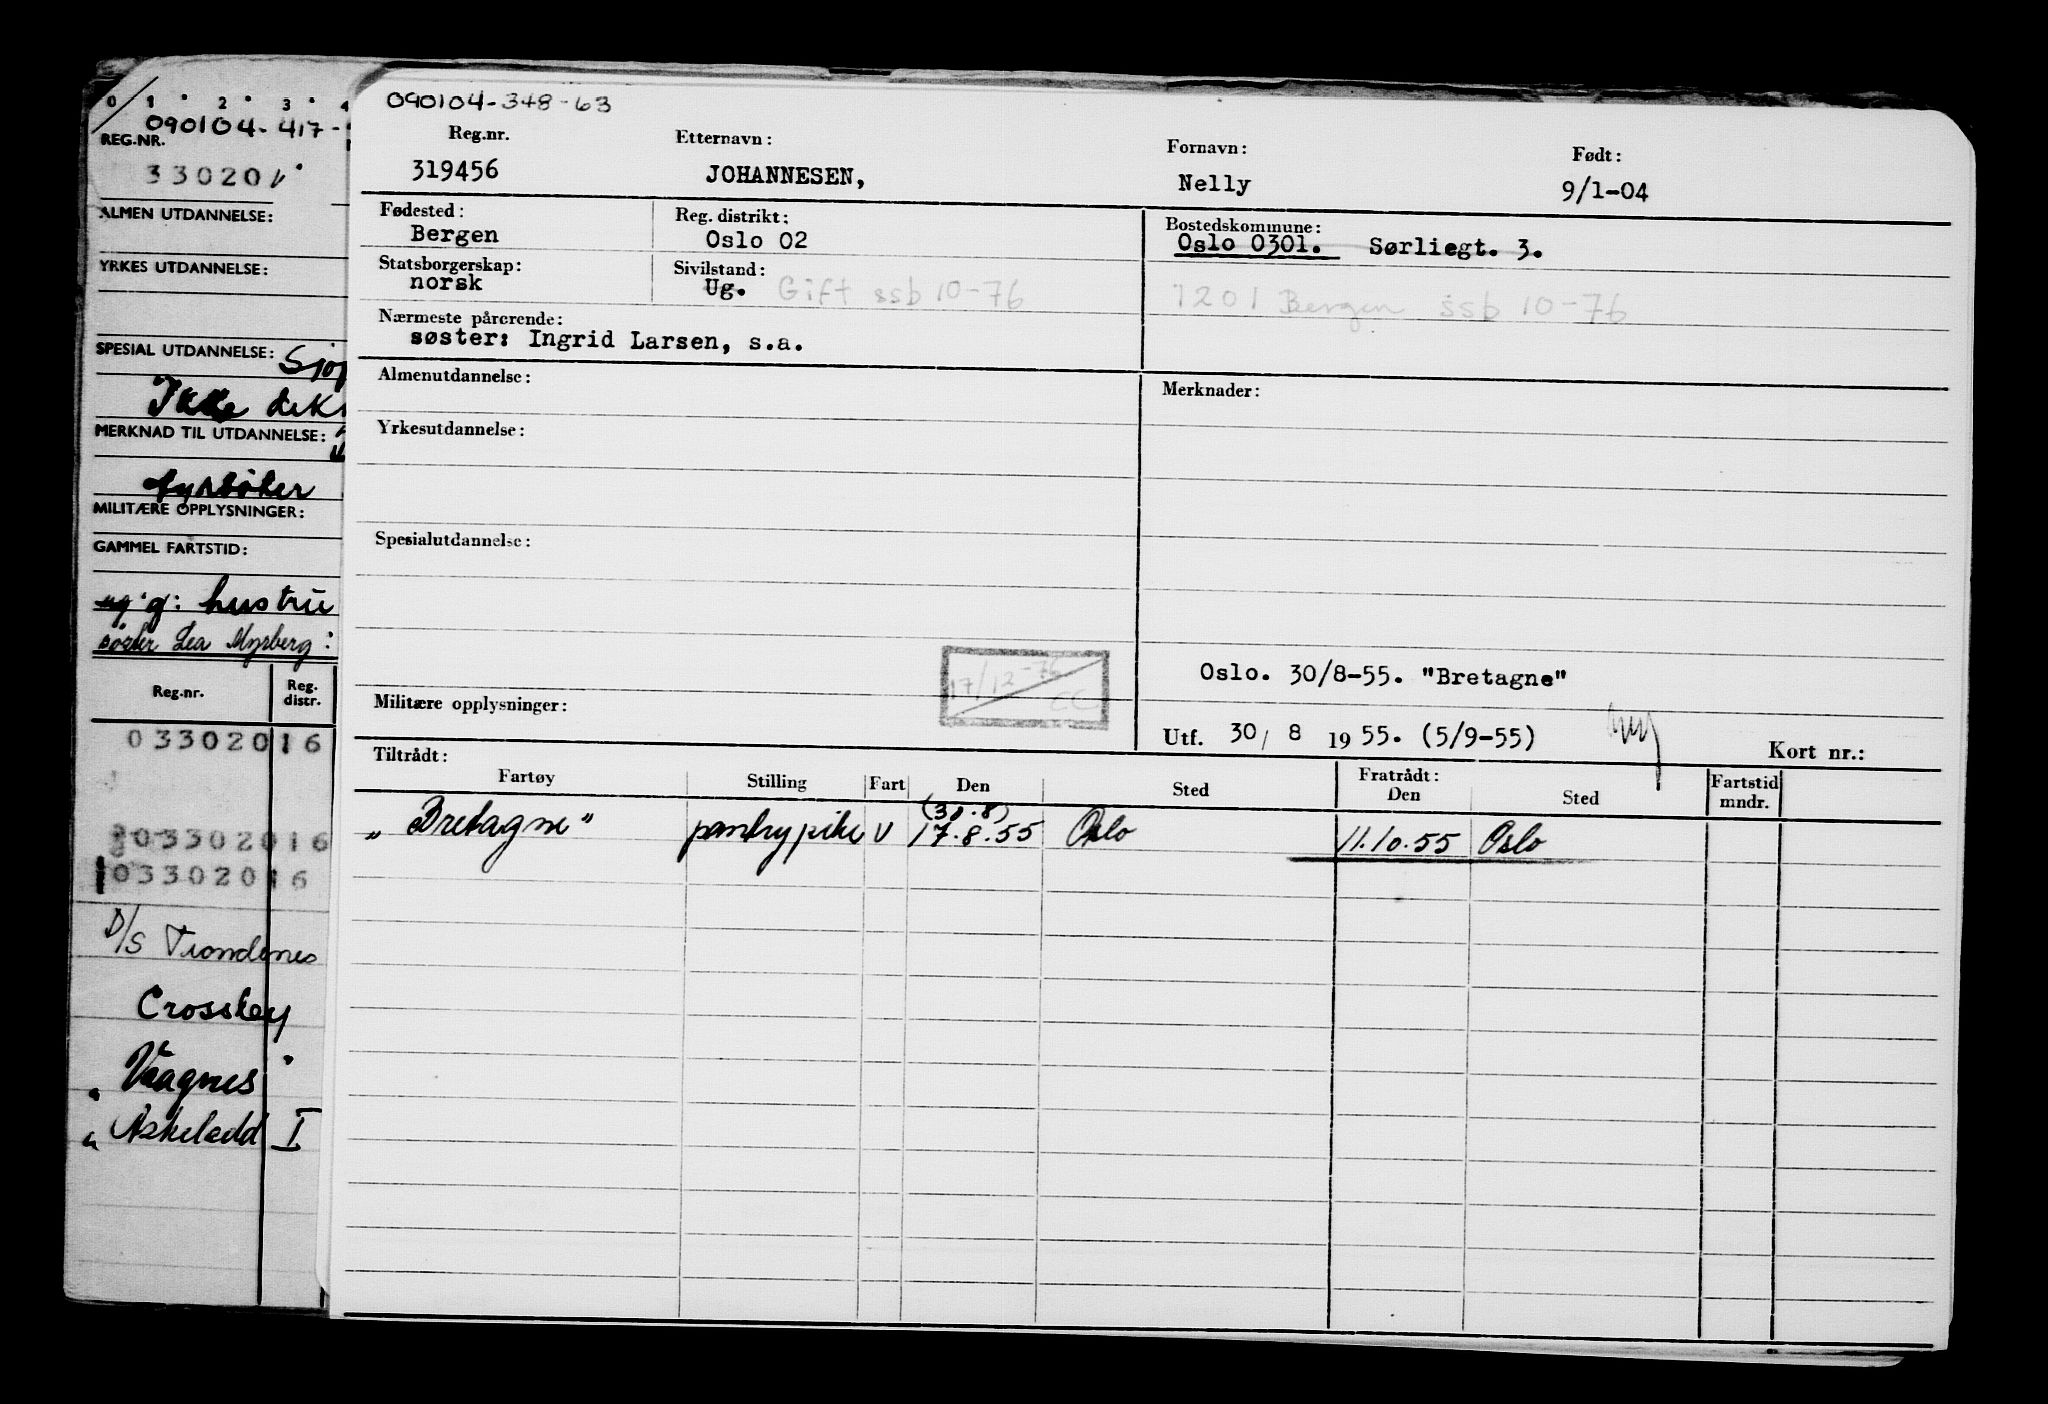 0 1 2 3 4
090104-417-
REG.NR.
330201
ALMEN UTDANNELSE:
YRKES UTDANNELSE:
SPESIAL UTDANNELSE:
Ikke
MERKNAD TIL UTDANNELSE:
fyrbøter
MILITÆRE OPPLYSNINGER:
GAMMEL FARTSTID:
ug. g: hustru
søster Lea Myrberg:
Reg.nr. Reg. distr.
03302016
03302016
03302016
D/S Trondenes
Crosskey
"Vaagnes"
"Askeladd I
090104-348-63
Reg.nr. Etternavn: Fornavn: Født:
319456 JOHANNESEN, Nelly 9/1-04
Fødested: Reg. distrikt: Bostedskommune:
Bergen Oslo 02 Oslo 0301. Sørliegt. 3.
Statsborgerskap: Sivilstand:
norsk Ug. Gift ssb 10-76 1201 Bergen ssb 10-76
Nærmeste pårørende:
søster: Ingrid Larsen, s.a.
Almenutdannelse: Merknader:
Yrkesutdannelse:
Spesialutdannelse:
17/12-76
Oslo. 30/8-55. "Bretagne"
Militære opplysninger:
Utf. 30/ 8 1955. (5/9-55) Kort nr.:
Tiltrådt: Fratrådt:
Fartøy Stilling Fart Den Sted Den Sted Fartstid mndr.
(30.8)
"Bretagne" pantrypike V 17.8.55 Oslo 11.10.55 Oslo